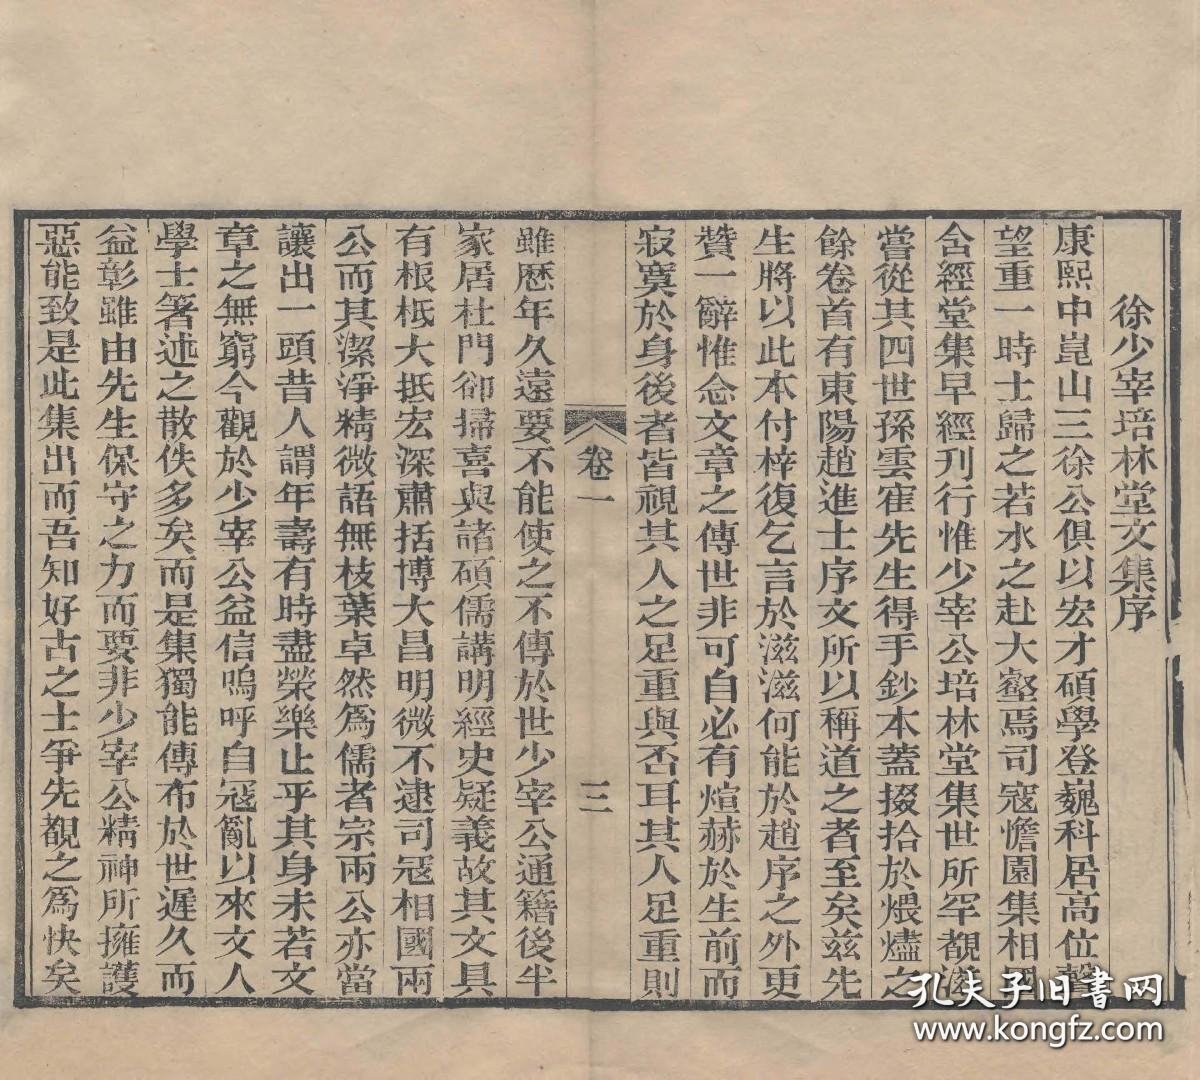 徐少宰培林堂文集序
康熙中崑山三徐公俱以宏才碩學登巍科居高位聲
望重一時士歸之若水之赴大壑焉司寇憺園集相國
含經堂集早經刊行惟少宰公培林堂集世所罕覩滋
嘗從其四世孫雲寉先生得手鈔本蓋掇拾於煨燼之
餘卷首有東陽趙進士序文所以稱道之者至矣茲先
生將以此本付梓復乞言於滋滋何能於趙序之外更
贊一辭惟念文章之傳世非可自必有煊赫於生前而
寂寞於身後者皆視其人之足重與否耳其人足重則
卷一
三
雖歷年久遠要不能使之不傳於世少宰公通籍後半
家居杜門卻掃喜與諸碩儒講明經史疑義故其文具
有根柢大抵宏深肅括博大昌明微不逮司寇相國兩
公而其潔淨精微語無枝葉卓然爲儒者宗兩公亦當
讓出一頭昔人謂年壽有時盡榮樂止乎其身未若文
章之無窮今觀於少宰公益信嗚呼自寇亂以來文人
學士箸述之散佚多矣而是集獨能傳布於世遲久而
益彰雖由先生保守之力而要非少宰公精神所擁護
惡能致是此集出而吾知好古之士爭先覩之爲快矣
孔夫子旧书网
www.kongfz.com